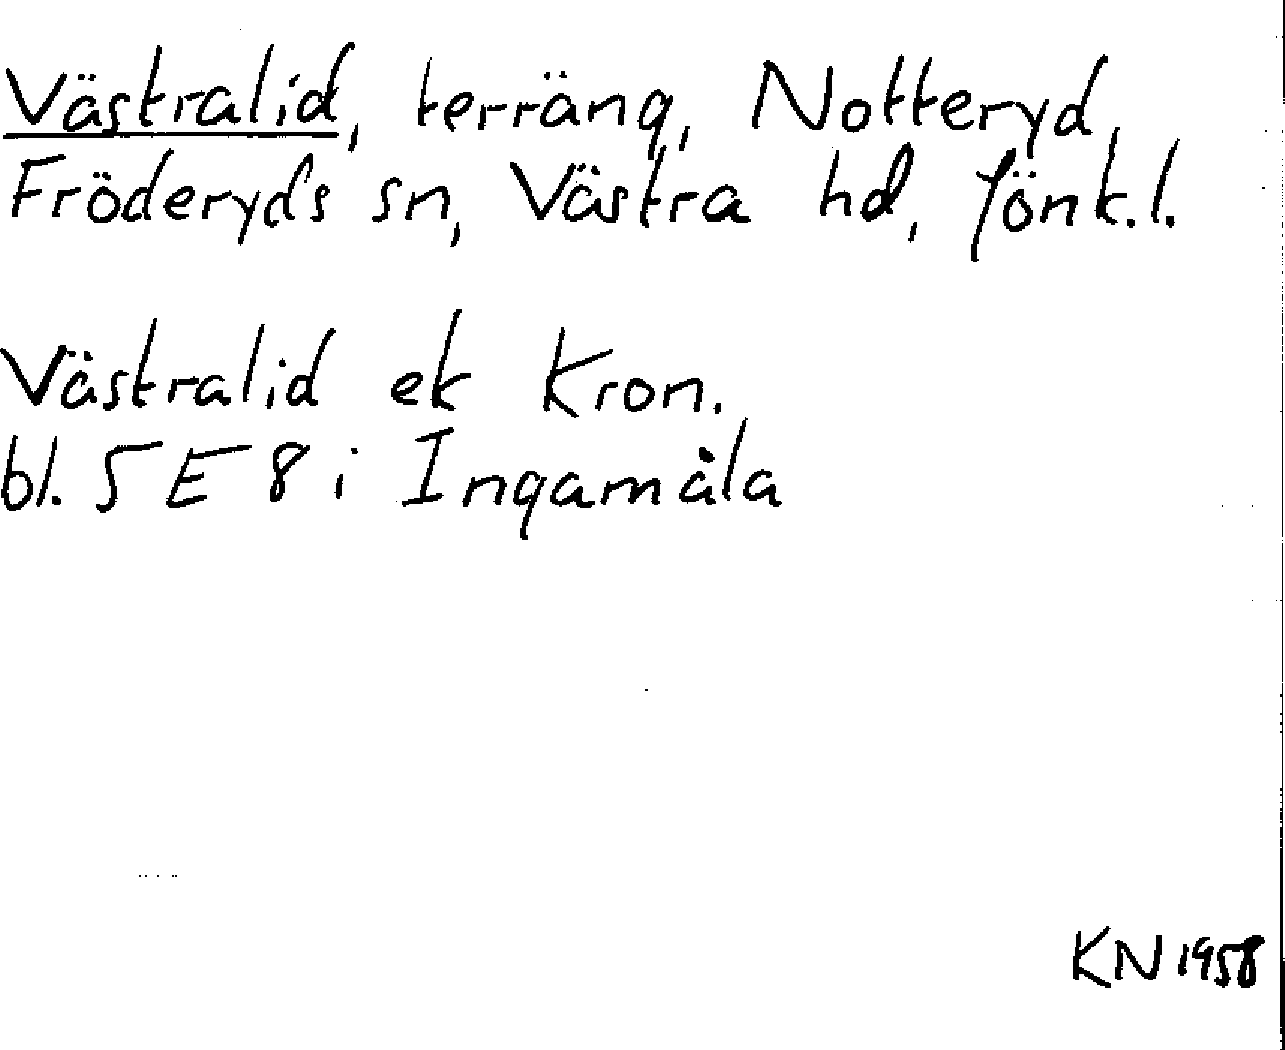 Västralid, terräng, Notteryd,
Fröderyds sn, Västra hd, Jönk.l.
Västralid ek Kron.
bl. 5 E 8 i Ingamåla
KN 1958